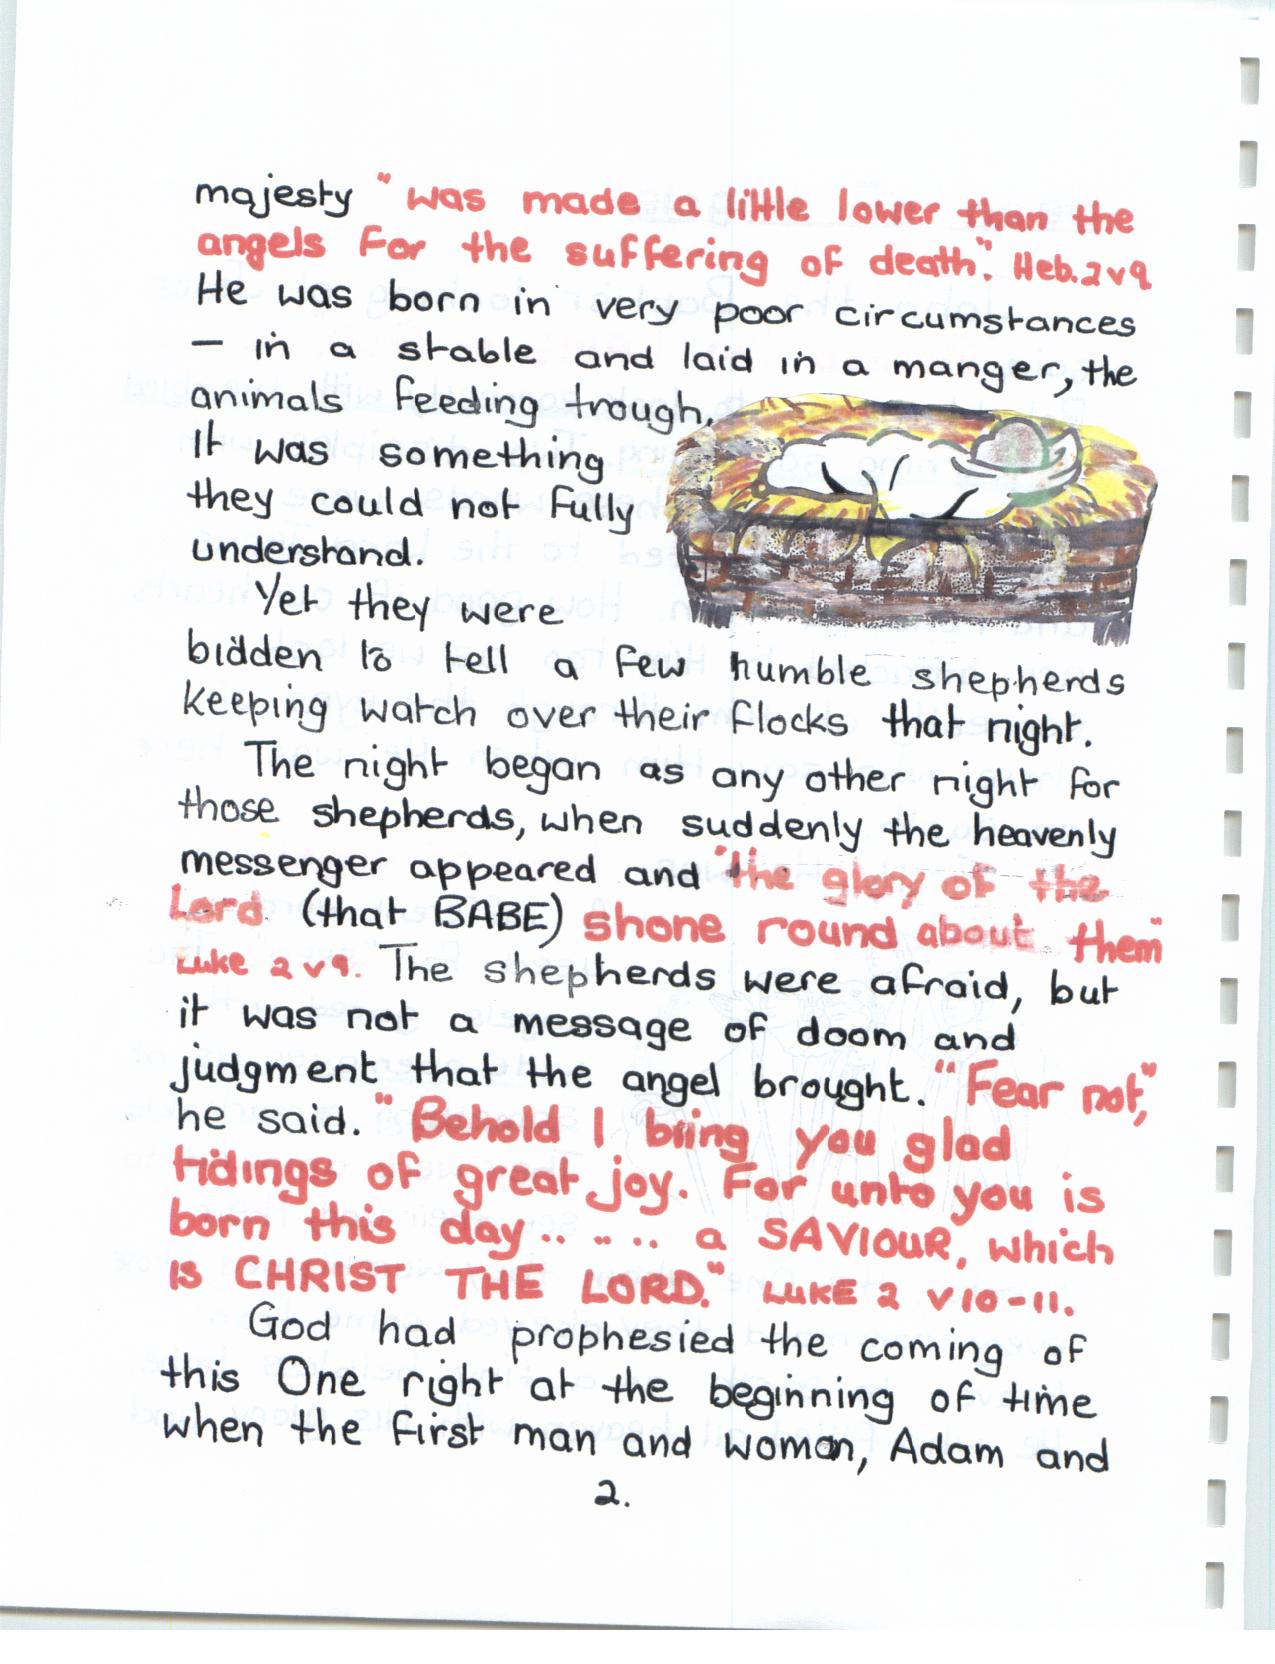 majesty "was made a little lower than the
angels for the suffering of death". Heb. 2 v 9
He was born in very poor circumstances
– in a stable and laid in a manger, the
animals feeding trough.
It was something
they could not fully
understand.
Yet they were
bidden to tell a few humble shepherds
keeping watch over their flocks that night.
The night began as any other night for
those shepherds, when suddenly the heavenly
messenger appeared and "the glory of the
Lord (that BABE) shone round about them"
Luke 2 v 9. The shepherds were afraid, but
it was not a message of doom and
judgment that the angel brought. "Fear not,"
he said. "Behold I bring you glad
tidings of great joy. For unto you is
born this day .. .. .. a SAVIOUR, which
is CHRIST THE LORD." LUKE 2 v 10-11.
God had prophesied the coming of
this One right at the beginning of time
when the first man and woman, Adam and
2.